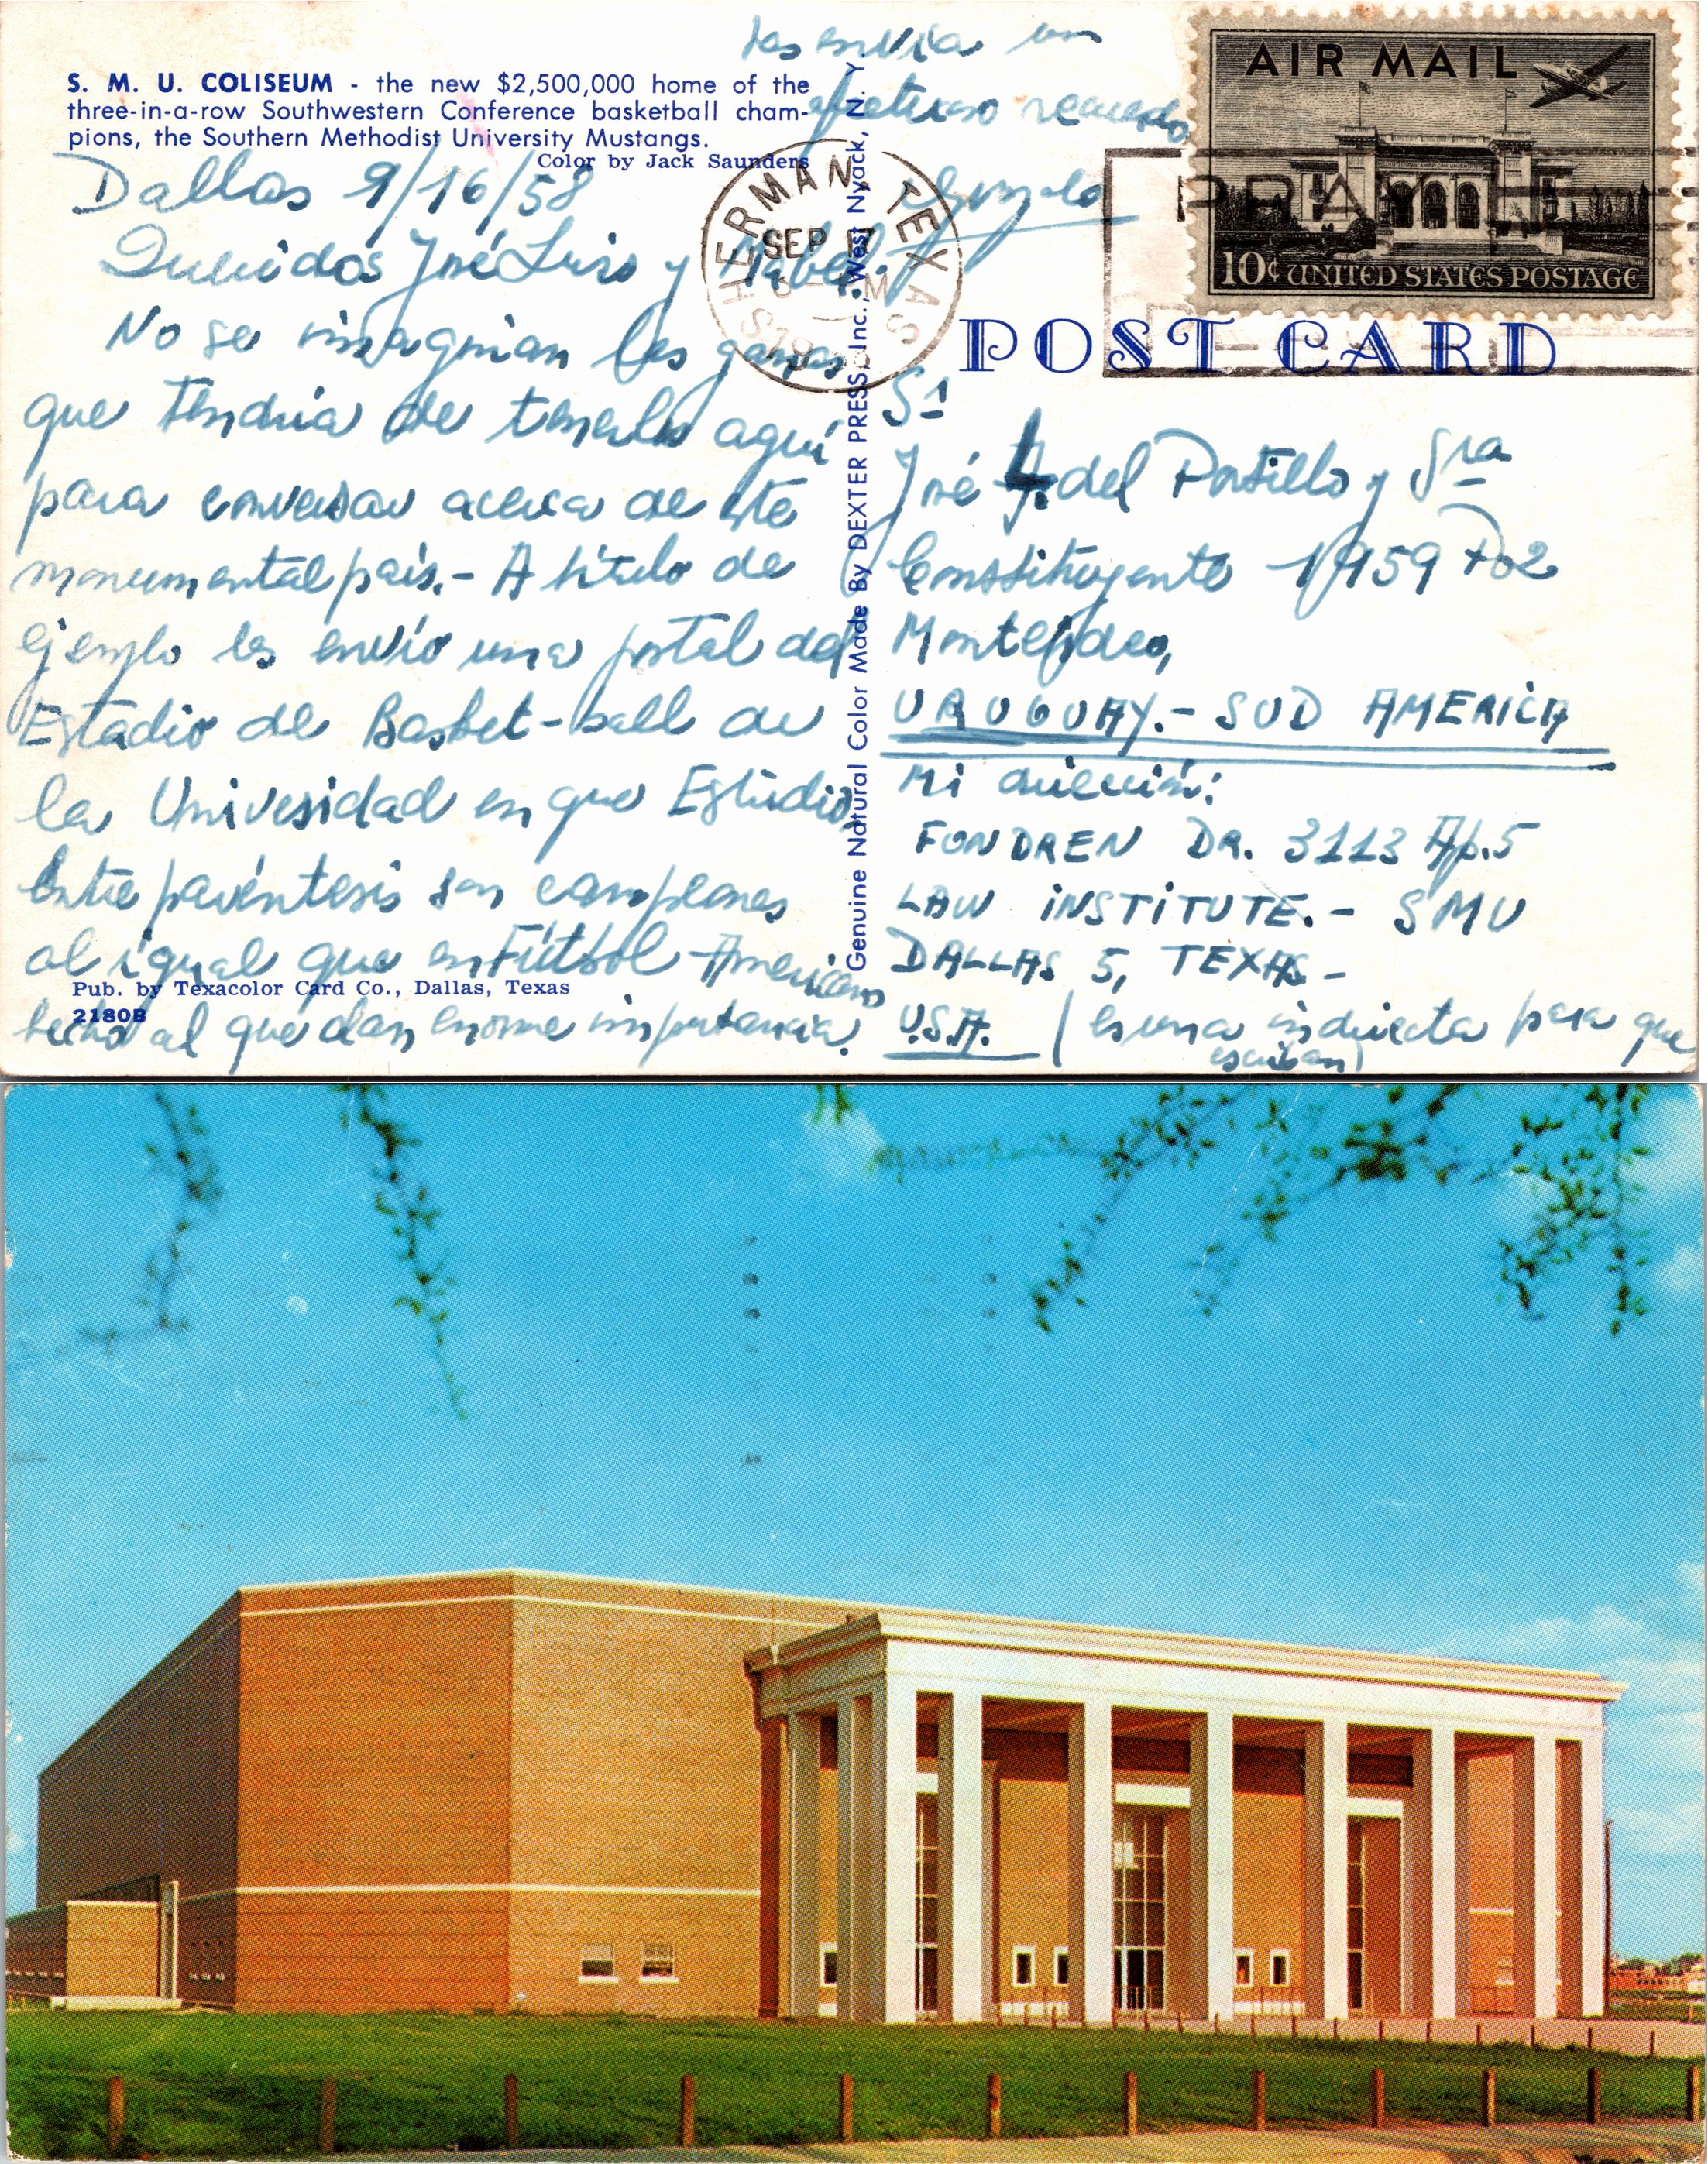 S. M. U. COLISEUM - the new $2,500,000 home of the
three-in-a-row Southwestern Conference basketball cham-
pions, the Southern Methodist University Mustangs.
Color by Jack Saunders
Dallas 9/16/58
Queridos José Luis y Mabel.
No se imaginan las ganas
que tendria de tenerlos aquí
para conversar acerca de este
monumental país.- A título de
ejemplo les envío una postal del
Estadio de Basket-ball de
la Universidad en que Estudio,
Entre paréntesis son campeones
al igual que en Fútbol Americano
hecho al que dan enorme importancia.
Les envia un
afectuoso recuerdo
Pub. by Texacolor Card Co., Dallas, Texas
2180B
Genuine Natural Color Made By DEXTER PRESS, Inc., West Nyack, N. Y.
SHERMAN, TEXAS
SEP
PM
PRAY
AIR MAIL
10¢ UNITED STATES POSTAGE
POST CARD
Sr
José L. del Portillo y Sra
Constituyente 1959 Po2
Montevideo,
URUGUAY.- SUD AMERICA
Mi dirección:
FONDREN DR. 3113 Ap.5
LAW INSTITUTE.- SMU
DALLAS 5, TEXAS-
U.S.A. (es una indirecta para que
escriban)